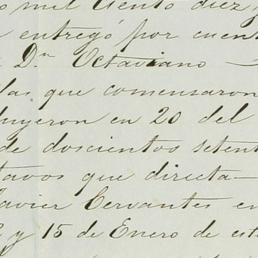 mil ciento diez
entregó por cuent
Dn Octaviano
las que comensaron
luyeron en 20 del
de doscientos seten
tavos que directa—
avier Cervantes en
y 15 de Enero de est